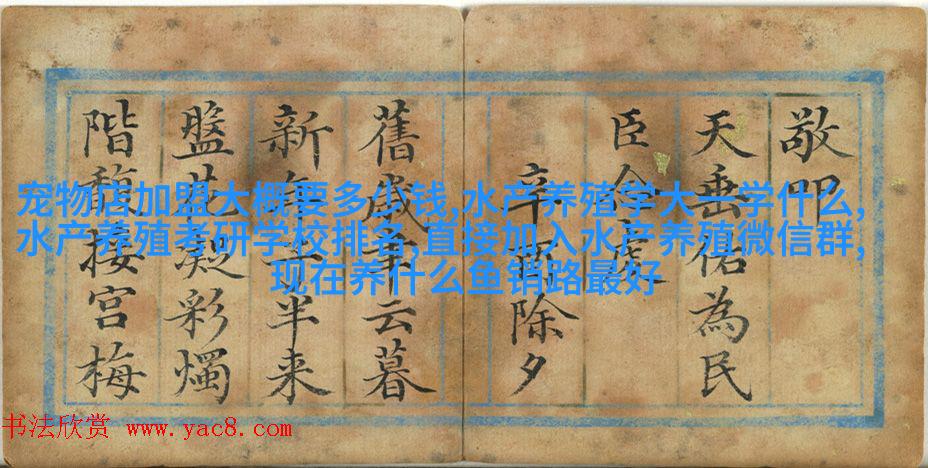 敬叩
天垂佑為民
臣虔
辛除夕
舊歲云暮
新年半来
盤花疑彩燭
階馥接宮梅
宠物店加盟大概要多少钱,水产养殖学大一学什么,
水产养殖考研学校排名,直接加入水产养殖微信群,
现在养什么鱼销路最好
书法欣赏 www.yac8.com